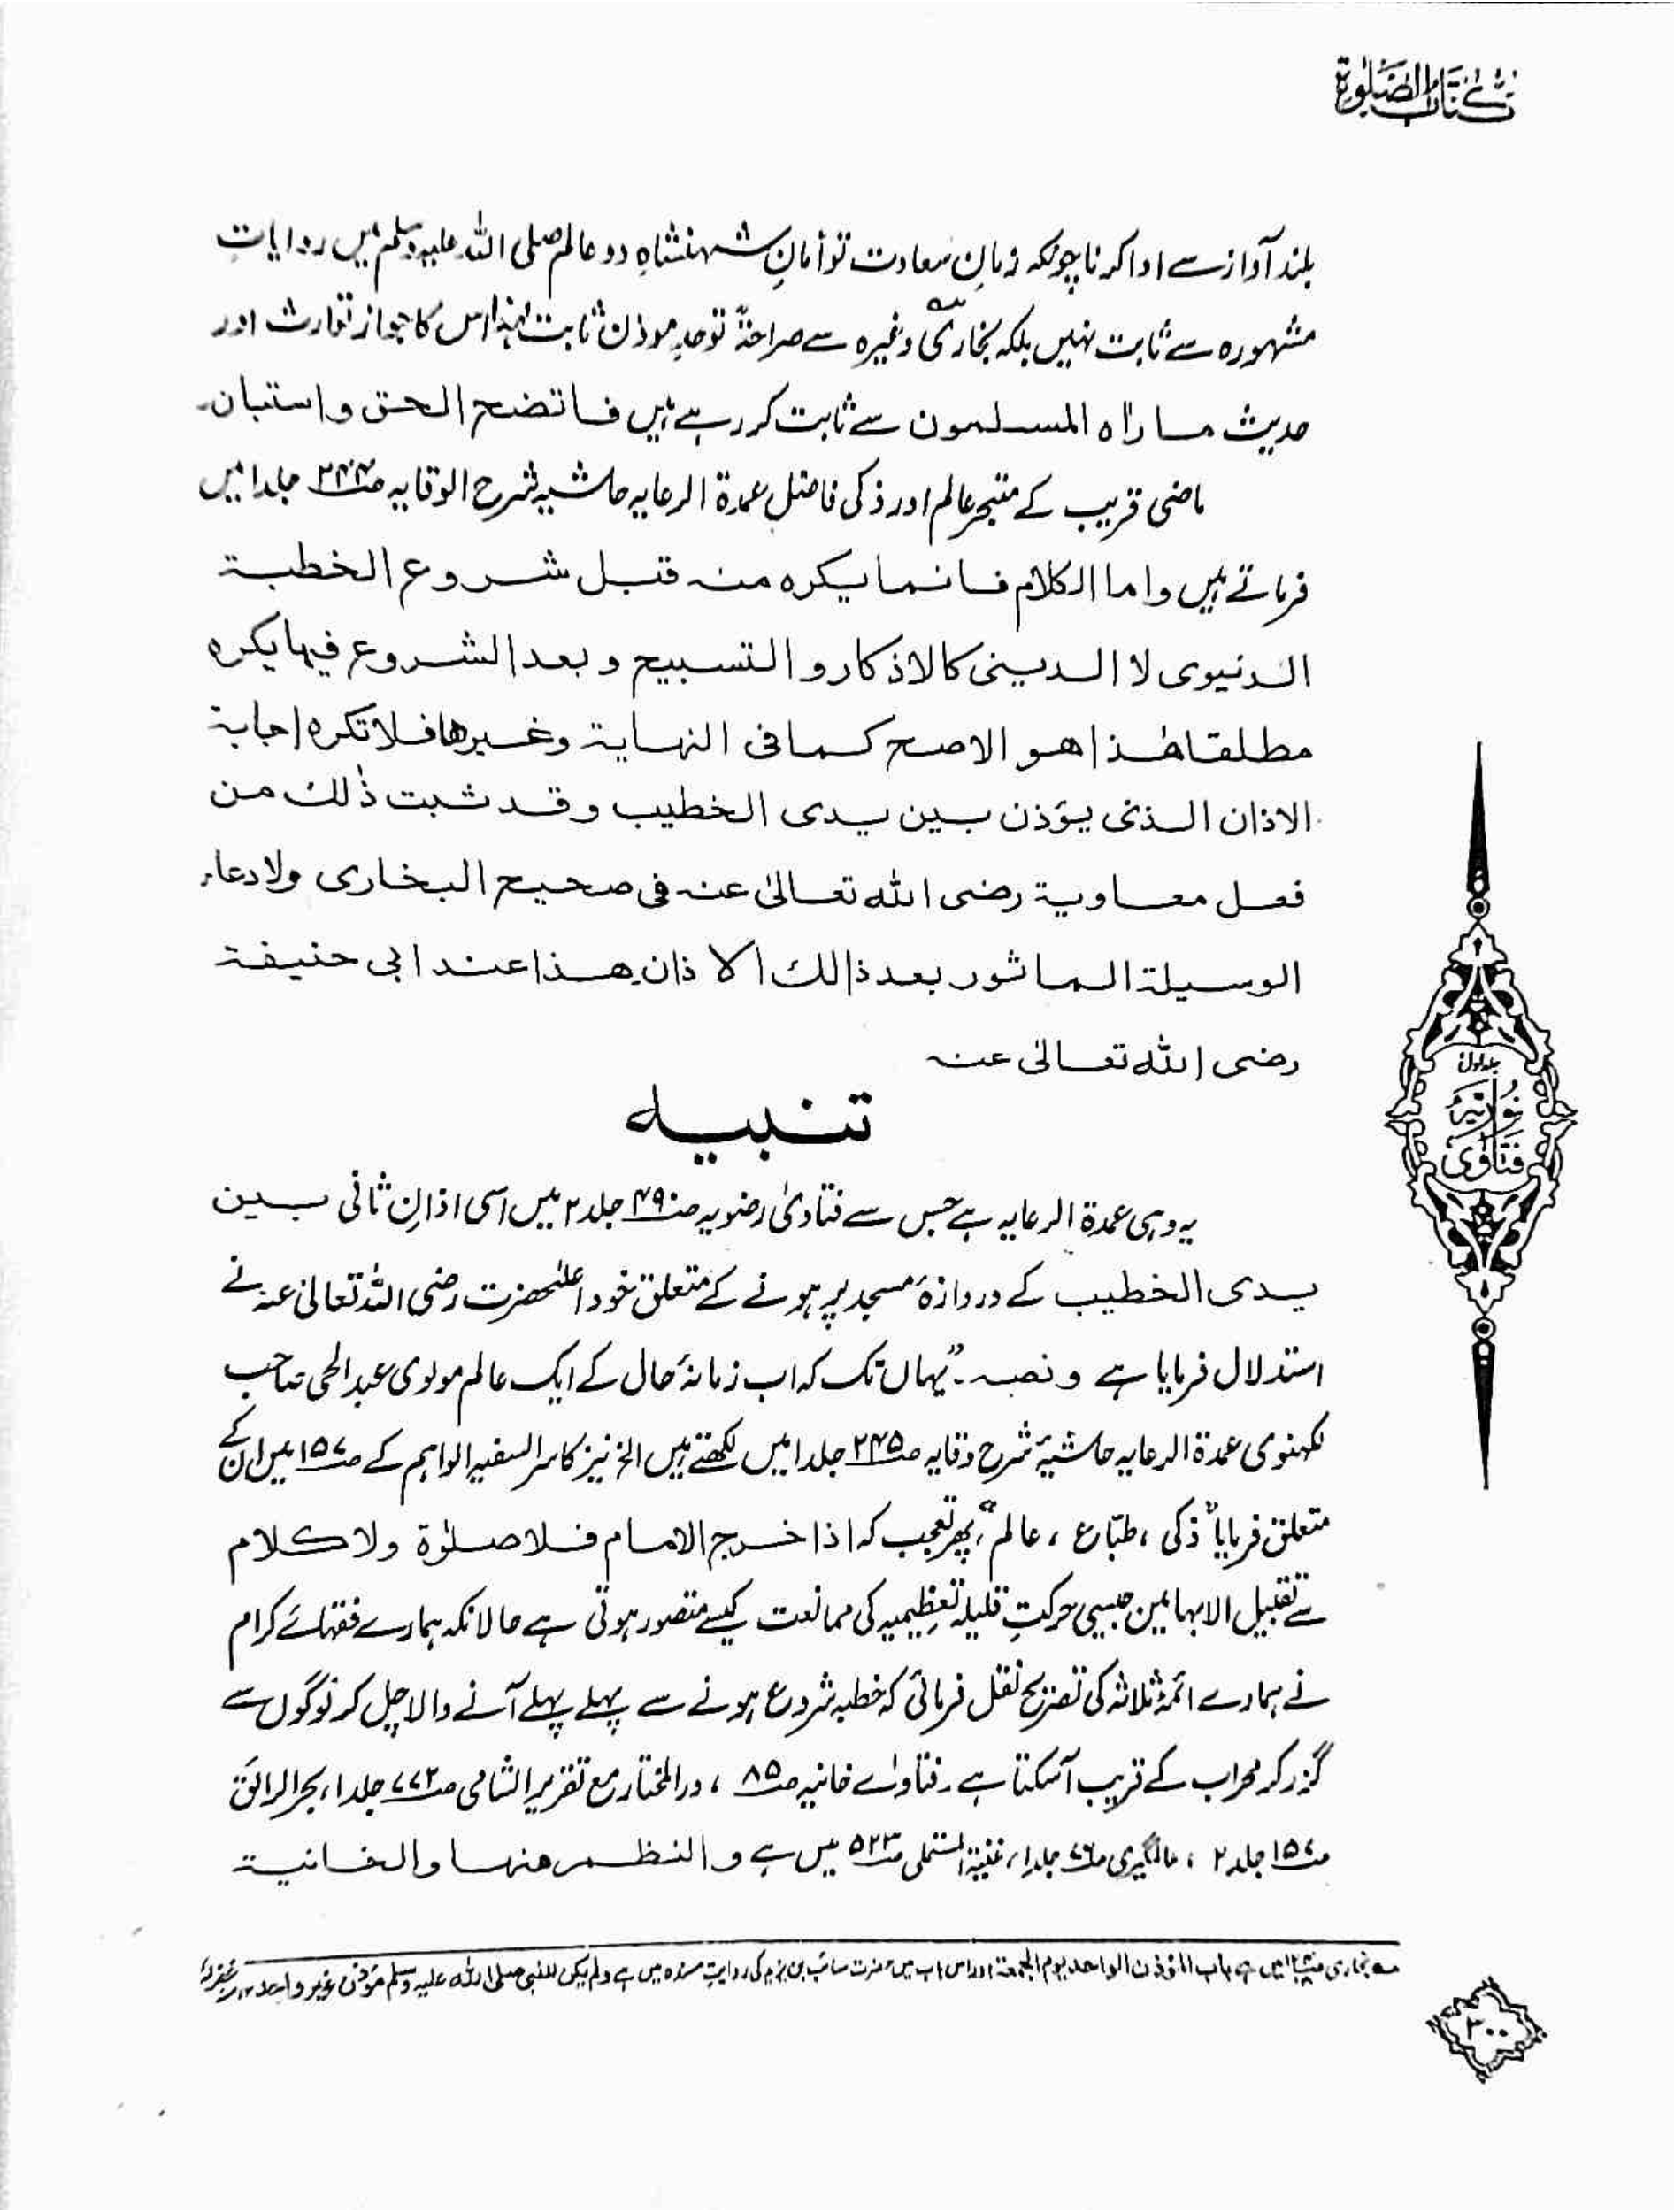 كتاب الصلوة
بلند آواز سے ادا کرنا چونکہ زمانِ سعادت توأمانِ شہنشاہِ دو عالم صلی اللہ علیہ وسلم میں روایات
مشہورہ سے ثابت نہیں بلکہ بخاری وغیرہ سے صراحۃً توحدِ موذن ثابت لہٰذا اس کا جواز توارث اور
حدیث ما رآہ المسلمون سے ثابت کر رہے ہیں فاتضح الحق واستبان۔
ماضی قریب کے متبحر عالم اور ذکی فاضل عمدۃ الرعایہ حاشیہ شرح الوقایہ ص۲۴۴ جلد۱ میں
فرماتے ہیں واما الکلام فانما یکرہ منہ قبل شروع الخطبۃ
الدنیوی لا الدینی کالاذکار و التسبیح و بعد الشروع فیہا یکرہ
مطلقا ھٰذا ھو الاصح کما فی النہایۃ وغیرھا فلا تکرہ اجابۃ
الاذان الذی یؤذن بین یدی الخطیب وقد ثبت ذٰلک من
فعل معاویۃ رضی اللہ تعالیٰ عنہ فی صحیح البخاری ولا دعاء
الوسیلۃ الماثور بعد ذالک الاذان ھذا عند ابی حنیفۃ
رضی اللہ تعالیٰ عنہ
تنبیہ
یہ وہی عمدۃ الرعایہ ہے جس سے فتاویٰ رضویہ ص۴۹۰ جلد ۲ میں اسی اذانِ ثانی بین
یدی الخطیب کے دروازۂ مسجد پر ہونے کے متعلق خود اعلٰیحضرت رضی اللہ تعالیٰ عنہ نے
استدلال فرمایا ہے و نصہ۔ "یہاں تک کہ اب زمانۂ حال کے ایک عالم مولوی عبد الحی صاحب
لکھنوی عمدۃ الرعایہ حاشیۂ شرح وقایہ ص۲۴۵ جلد۱ میں لکھتے ہیں الخ نیز کاسر السفیہ الواہم کے ص۱۵۷ میں ان کے
متعلق فرمایا "ذکی، طبّاع، عالم"، پھر تعجب کہ اذا خرج الامام فلا صلوٰۃ ولا کلام
سے تقبیل الابہامین جیسی حرکتِ قلیلہ تعظیمیہ کی ممانعت کیسے متصور ہوتی ہے حالانکہ ہمارے فقہائے کرام
نے ہمارے ائمۂ ثلاثہ کی تصریح نقل فرمائی کہ خطبہ شروع ہونے سے پہلے پہلے آنے والا چل کر لوگوں سے
گزر کر محراب کے قریب آسکتا ہے۔ فتاواے خانیہ ص۸۵، درالمختار مع تقریر الشامی ص۷۷۲ جلد ۱، بحر الرائق
ص۱۵۷ جلد ۲، عالمگیری ص۷۶ جلد۱، غنیۃ المستملی ص۵۲۳ میں ہے و النظم منہا والخانیۃ
بخاری میں ہے باب المؤذن الواحد یوم الجمعۃ اور اس باب میں حضرت سائب بن یزید کی روایت مسندہ میں ہے ولم یکن للنبی صلی اللہ علیہ وسلم مؤذن غیر واحد
جلد اول
فتاوی نوریہ
۳۰۰